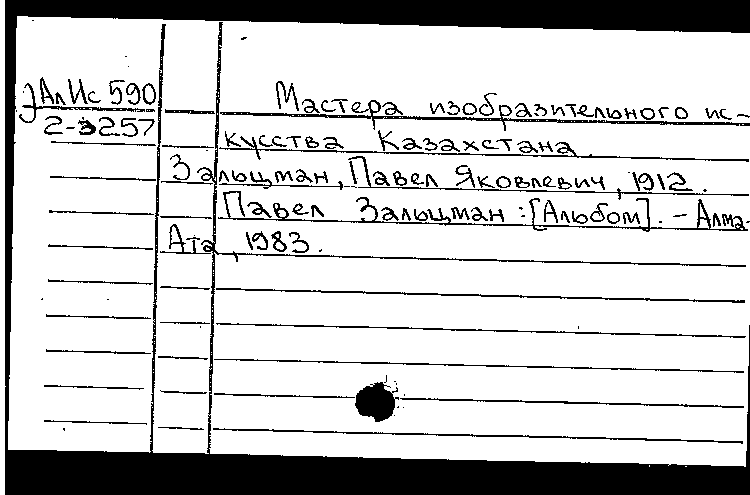 АлИс 590
2-3257
Мастера изобразительного ис-
кусства Казахстана.
Зальцман, Павел Яковлевич, 1912.
Павел Зальцман : [Альбом]. - Алма-
Ата, 1983.